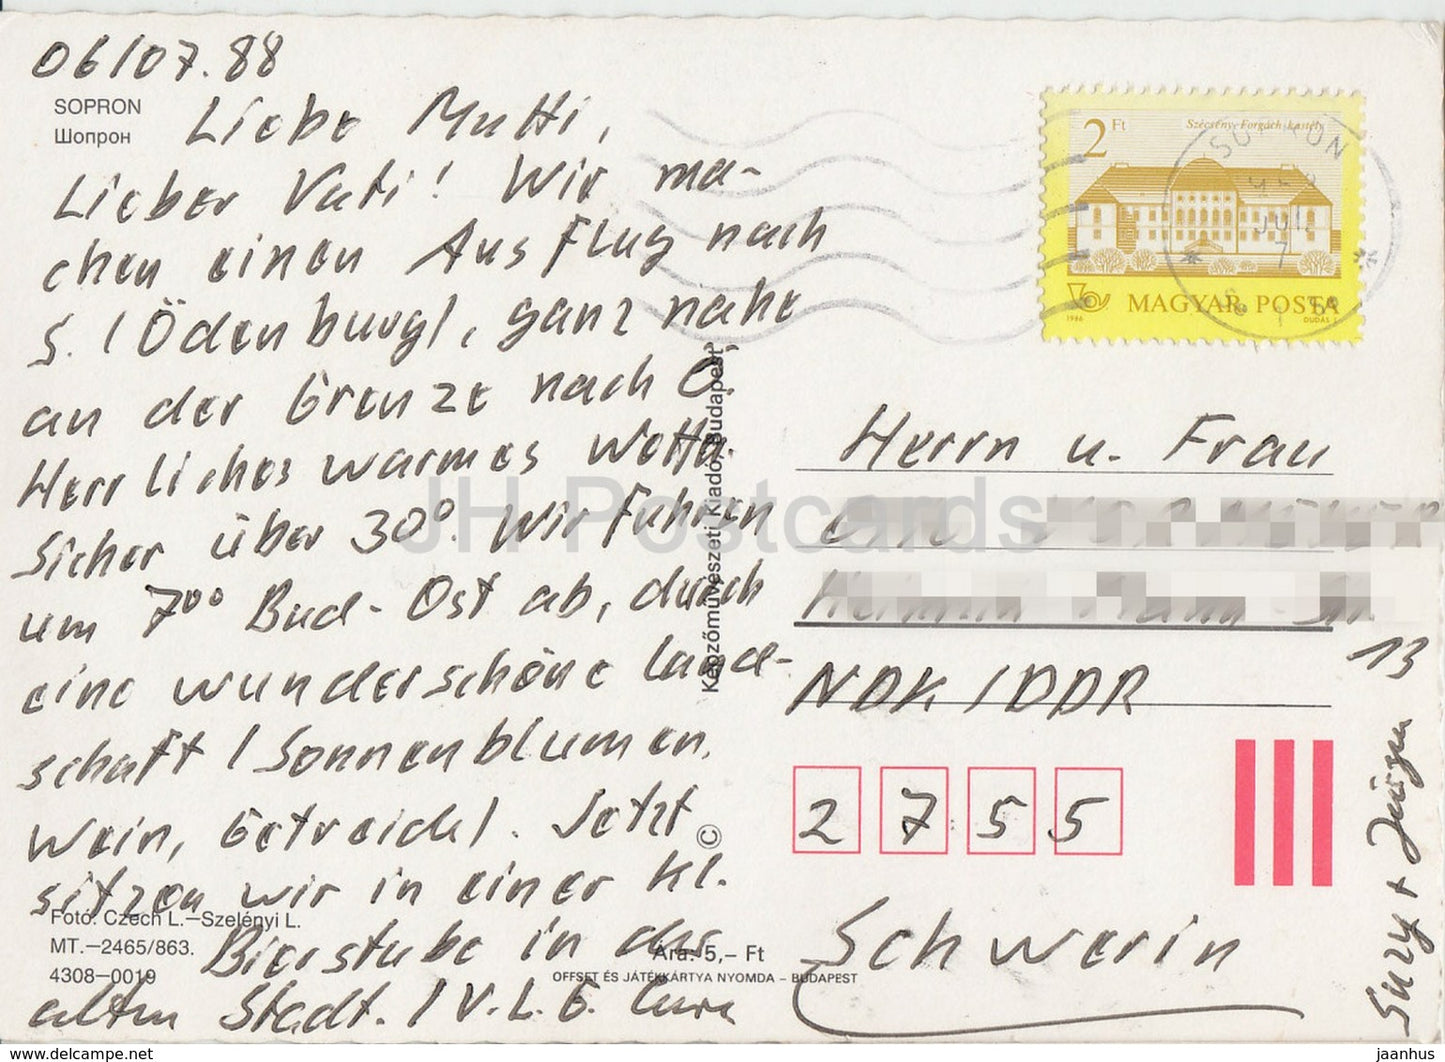 06/07.88
SOPRON
Шопрон
Liebe Mutti,
Lieber Vati! Wir ma-
chen einen Ausflug nach
S. (Ödenburg), ganz nahe
an der Grenze nach Ö.
Herrliches warmes Wetter.
Sicher über 30°. Wir fuhren
um 7⁰⁰ Bud-Ost ab, durch
eine wunderschöne Land-
schaft (Sonnenblumen,
Wein, Getreide). Jetzt
sitzen wir in einer kl.
Bierstube in der
alten Stadt. I.V.L.G. Eure
Suzy + Jürgen
Fotó: Czech L.—Szelényi L.
MT.—2465/863.
4308—0019
Ára: 5,– Ft
OFFSET ÉS JÁTÉKKÁRTYA NYOMDA – BUDAPEST
© Képzőművészeti Kiadó, Budapest
2 Ft
Szécsény, Forgách-kastély
MAGYAR POSTA
1986
DUDÁS L.
JUL
7
Herrn u. Frau
13
NDK/DDR
2 7 5 5
Schwerin
JH Postcards
delcampe.net
jaanhus